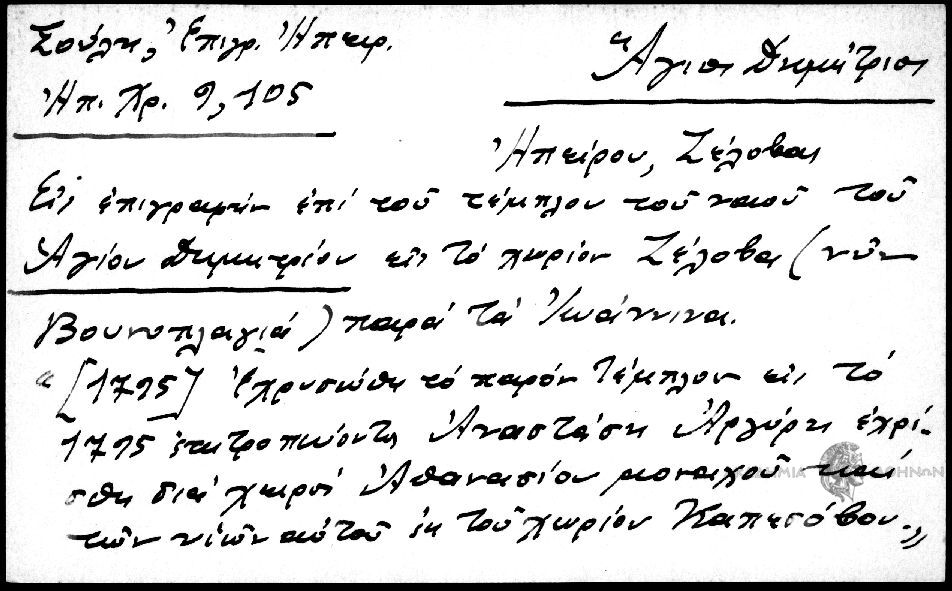 Σούλη, Ἐπιγρ. Ἠπειρ.
Ἠπ. Χρ. 9, 105
Ἅγιος Δημήτριος
Ἠπείρου, Ζέλοβας
Εἰς ἐπιγραφὴν ἐπὶ τοῦ τέμπλου τοῦ ναοῦ τοῦ
Ἁγίου Δημητρίου εἰς τὸ χωρίον Ζέλοβα (νῦν
Βουνοπλαγιά) παρὰ τὰ Ἰωάννινα.
"[1795] Ἐχρυσώθη τὸ παρὸν Τέμπλον εἰς τὸ
1795 ἐπιτροπεύοντος Ἀναστάση Ἀργύρη ἐχρί-
σθη διὰ χειρὸς Ἀθανασίου μοναχοῦ καὶ
τῶν υἱῶν αὐτοῦ ἐκ τοῦ χωρίου Καπεσόβου."